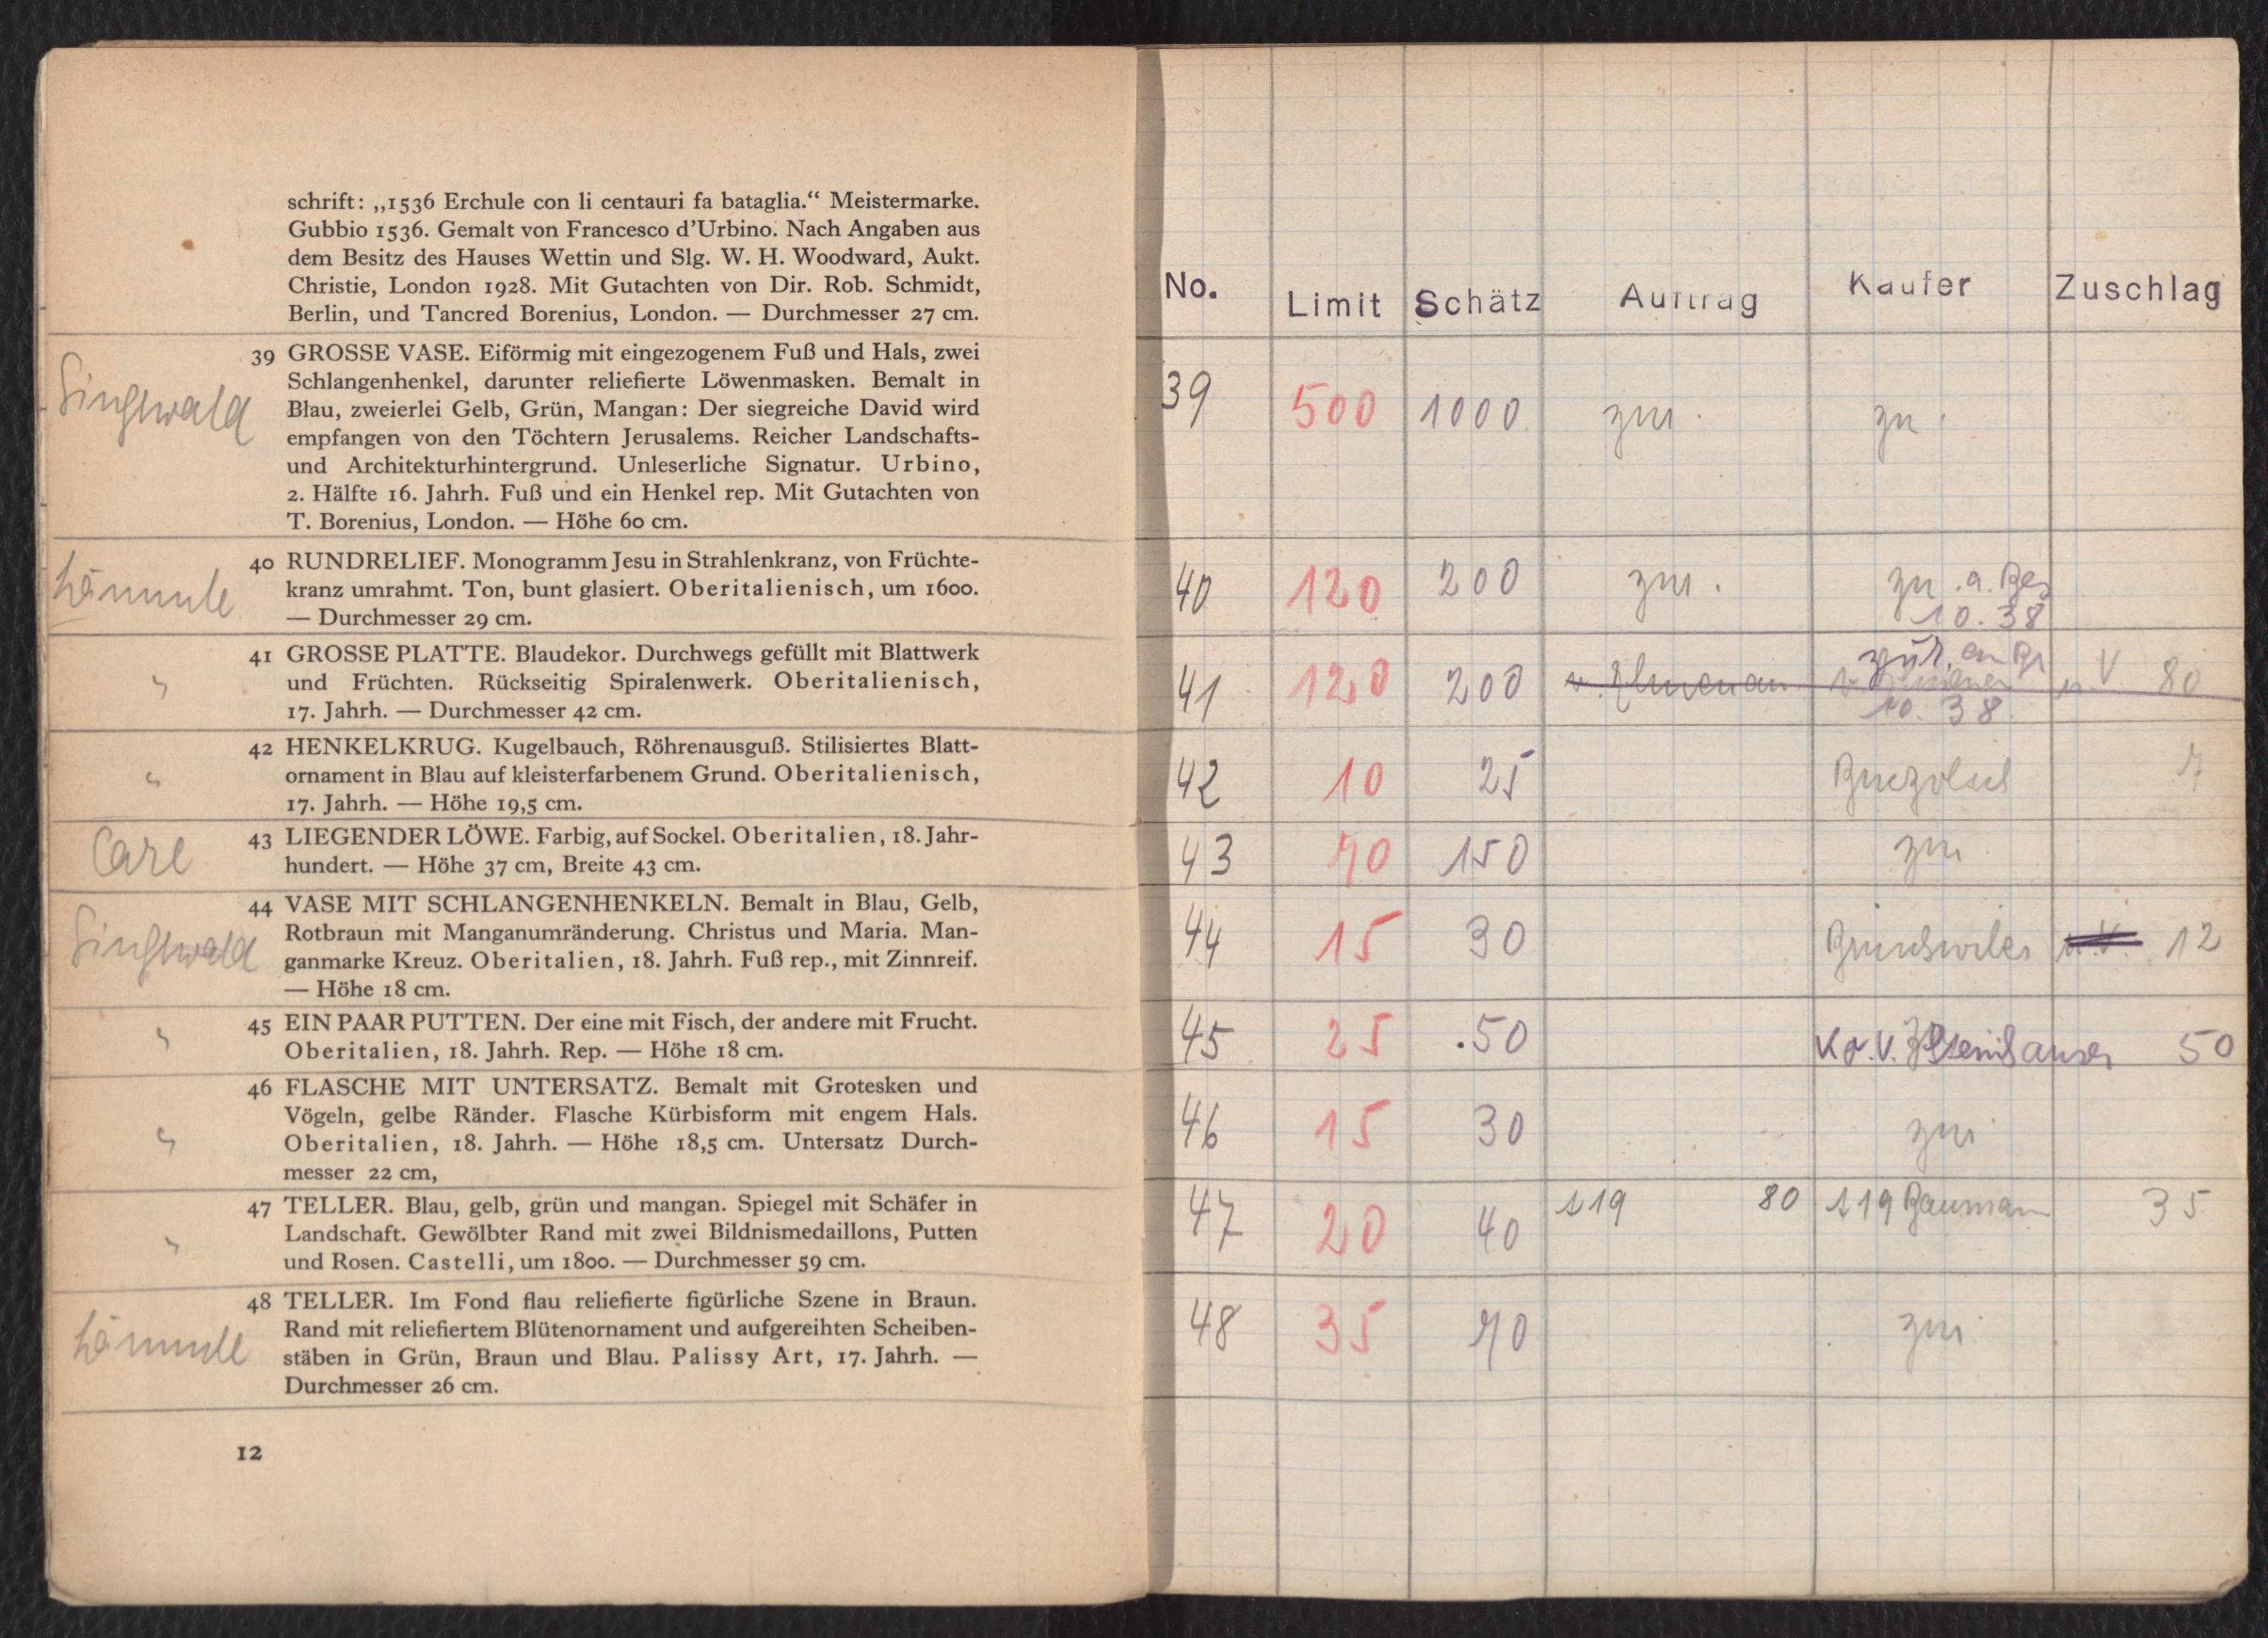 schrift: „1536 Erchule con li centauri fa bataglia.“ Meistermarke.
Gubbio 1536. Gemalt von Francesco d’Urbino. Nach Angaben aus
dem Besitz des Hauses Wettin und Slg. W. H. Woodward, Aukt.
Christie, London 1928. Mit Gutachten von Dir. Rob. Schmidt,
Berlin, und Tancred Borenius, London. — Durchmesser 27 cm.
Singewald
39 GROSSE VASE. Eiförmig mit eingezogenem Fuß und Hals, zwei
Schlangenhenkel, darunter reliefierte Löwenmasken. Bemalt in
Blau, zweierlei Gelb, Grün, Mangan: Der siegreiche David wird
empfangen von den Töchtern Jerusalems. Reicher Landschafts-
und Architekturhintergrund. Unleserliche Signatur. Urbino,
2. Hälfte 16. Jahrh. Fuß und ein Henkel rep. Mit Gutachten von
T. Borenius, London. — Höhe 60 cm.
Lämmle
40 RUNDRELIEF. Monogramm Jesu in Strahlenkranz, von Früchte-
kranz umrahmt. Ton, bunt glasiert. Oberitalienisch, um 1600.
— Durchmesser 29 cm.
"
41 GROSSE PLATTE. Blaudekor. Durchwegs gefüllt mit Blattwerk
und Früchten. Rückseitig Spiralenwerk. Oberitalienisch,
17. Jahrh. — Durchmesser 42 cm.
"
42 HENKELKRUG. Kugelbauch, Röhrenausguß. Stilisiertes Blatt-
ornament in Blau auf kleisterfarbenem Grund. Oberitalienisch,
17. Jahrh. — Höhe 19,5 cm.
Carl
43 LIEGENDER LÖWE. Farbig, auf Sockel. Oberitalien, 18. Jahr-
hundert. — Höhe 37 cm, Breite 43 cm.
Singewald
44 VASE MIT SCHLANGENHENKELN. Bemalt in Blau, Gelb,
Rotbraun mit Manganumränderung. Christus und Maria. Man-
ganmarke Kreuz. Oberitalien, 18. Jahrh. Fuß rep., mit Zinnreif.
— Höhe 18 cm.
"
45 EIN PAAR PUTTEN. Der eine mit Fisch, der andere mit Frucht.
Oberitalien, 18. Jahrh. Rep. — Höhe 18 cm.
"
46 FLASCHE MIT UNTERSATZ. Bemalt mit Grotesken und
Vögeln, gelbe Ränder. Flasche Kürbisform mit engem Hals.
Oberitalien, 18. Jahrh. — Höhe 18,5 cm. Untersatz Durch-
messer 22 cm,
"
47 TELLER. Blau, gelb, grün und mangan. Spiegel mit Schäfer in
Landschaft. Gewölbter Rand mit zwei Bildnismedaillons, Putten
und Rosen. Castelli, um 1800. — Durchmesser 59 cm.
Lämmle
48 TELLER. Im Fond flau reliefierte figürliche Szene in Braun.
Rand mit reliefiertem Blütenornament und aufgereihten Scheiben-
stäben in Grün, Braun und Blau. Palissy Art, 17. Jahrh. —
Durchmesser 26 cm.
12
No. Limit Schätz Auftrag Kaufer Zuschlag
39 500 1000 zur. zu.
40 120 200 zur. zu. a. Bes
10.38
zür. an Bs
41 120 200 u.V. 80
10.38
42 10 25 7
43 70 150 zur
44 15 30 u.V. 12
45 25 50 50
46 15 30 zur
47 20 40 119 80 119 Baumann 35
48 35 70 zur